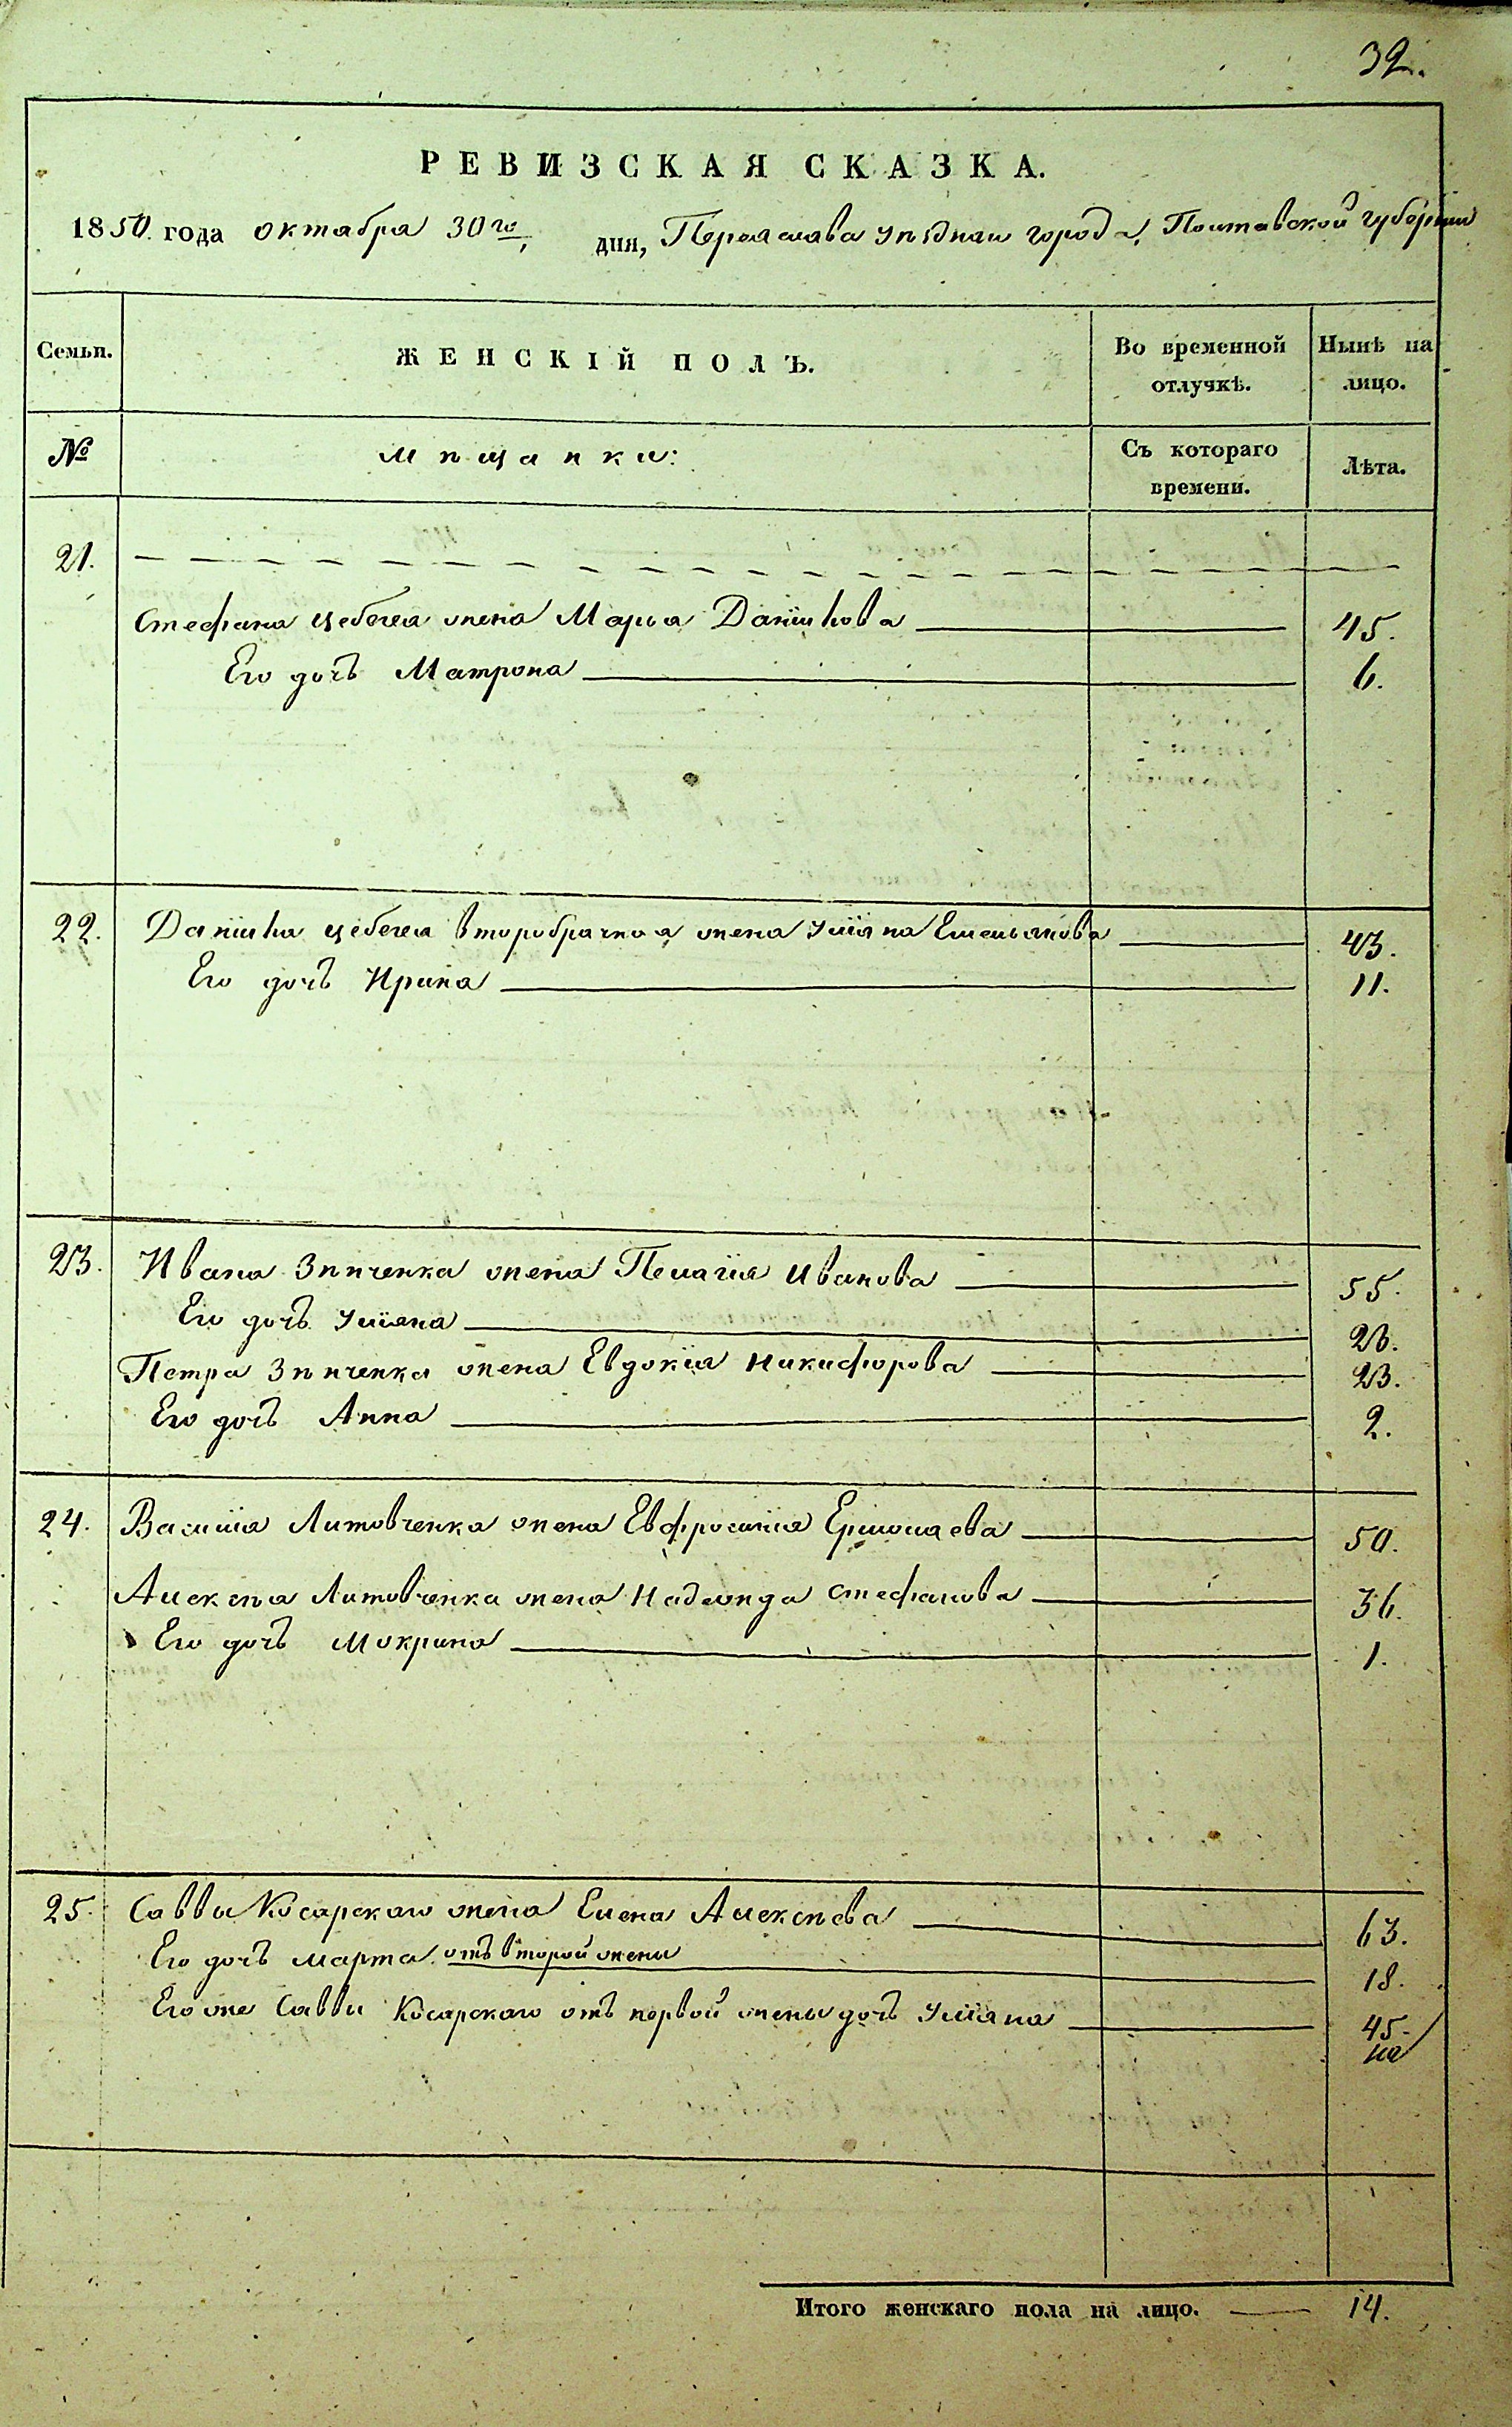 32.
РЕВИЗСКАЯ СКАЗКА.
1850. года октабра 30го, дня, Переяслава уѣзднаго города, Полтавской губерніи
Семьи. ЖЕНСКІЙ ПОЛЪ. Во временной отлучкѣ. Нынѣ на лицо.
№ Мѣщанки: Съ котораго времени. Лѣта.
21.
Стефана Цебегея жена Марья Данилова 45.
Его дочь Матрона 6.
22. Данила Цебегея второбрачная жена Уліяна Емельянова 43.
Его дочь Ирина 11.
23. Ивана Зѣнченка жена Пелагія Иванова 55.
Его дочь Уліяна 23.
Петра Зѣнченка жена Евдокія Никифорова 23.
Его дочь Анна 2.
24. Василія Литовченка жена Евфросинія Ермолаева 50.
Алексѣя Литовченка жена Надежда Стефанова 36.
Его дочь Мокрина 1.
25. Саввы Косарскаго жена Елена Алексѣева 63.
Его дочь Марта отъ второй жены 18.
Его же Саввы Косарскаго отъ первой жены дочь Уліяна 45.
на
Итого женскаго пола на лицо. 14.